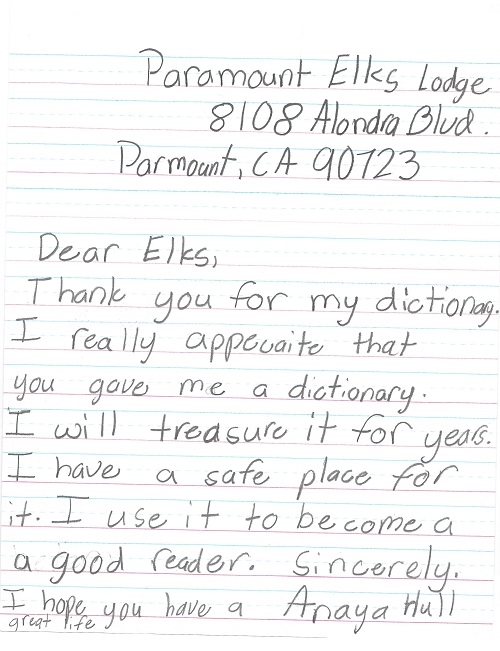 Paramount Elks Lodge
8108 Alondra Blvd.
Parmount, CA 90723
Dear Elks,
Thank you for my dictionary.
I really appecaite that
you gave me a dictionary.
I will treasure it for years.
I have a safe place for
it. I use it to become a
a good reader. Sincerely.
I hope you have a Anaya Hull
great life